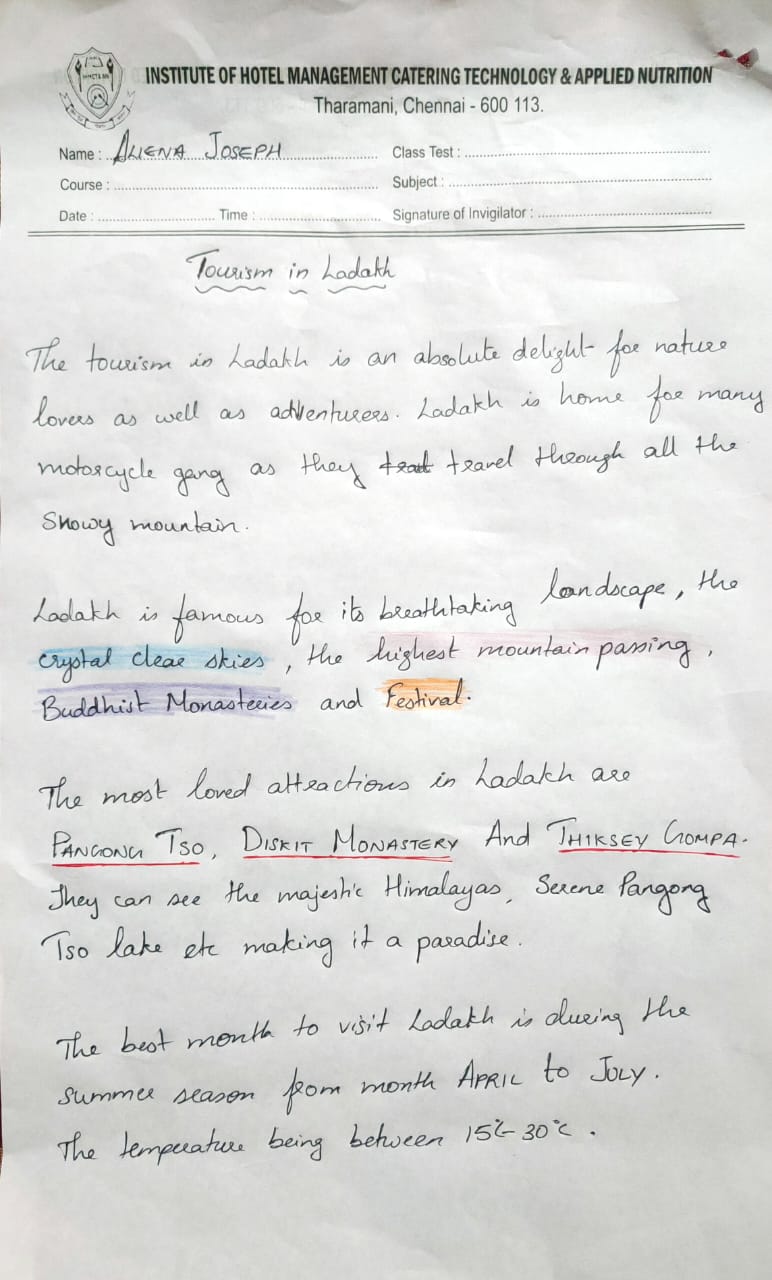 INSTITUTE OF HOTEL MANAGEMENT CATERING TECHNOLOGY & APPLIED NUTRITION
Tharamani, Chennai - 600 113.
Name : ALIENA JOSEPH Class Test :
Course : Subject :
Date : Time : Signature of Invigilator :
Tourism in Ladakh
The tourism in Ladakh is an absolute delight for nature
lovers as well as adventurers. Ladakh is home for many
motorcycle gang as they travel through all the
Snowy mountain.
Ladakh is famous for its breathtaking landscape, the
crystal clear skies, the highest mountain passing,
Buddhist Monasteries and Festival.
The most loved attractions in Ladakh are
PANGONG TSO, DISKIT MONASTERY And THIKSEY GOMPA.
They can see the majestic Himalayas, Serene Pangong
Tso lake etc making it a paradise.
The best month to visit Ladakh is during the
summer season from month APRIL to JULY.
The temperature being between 15°C-30°C.